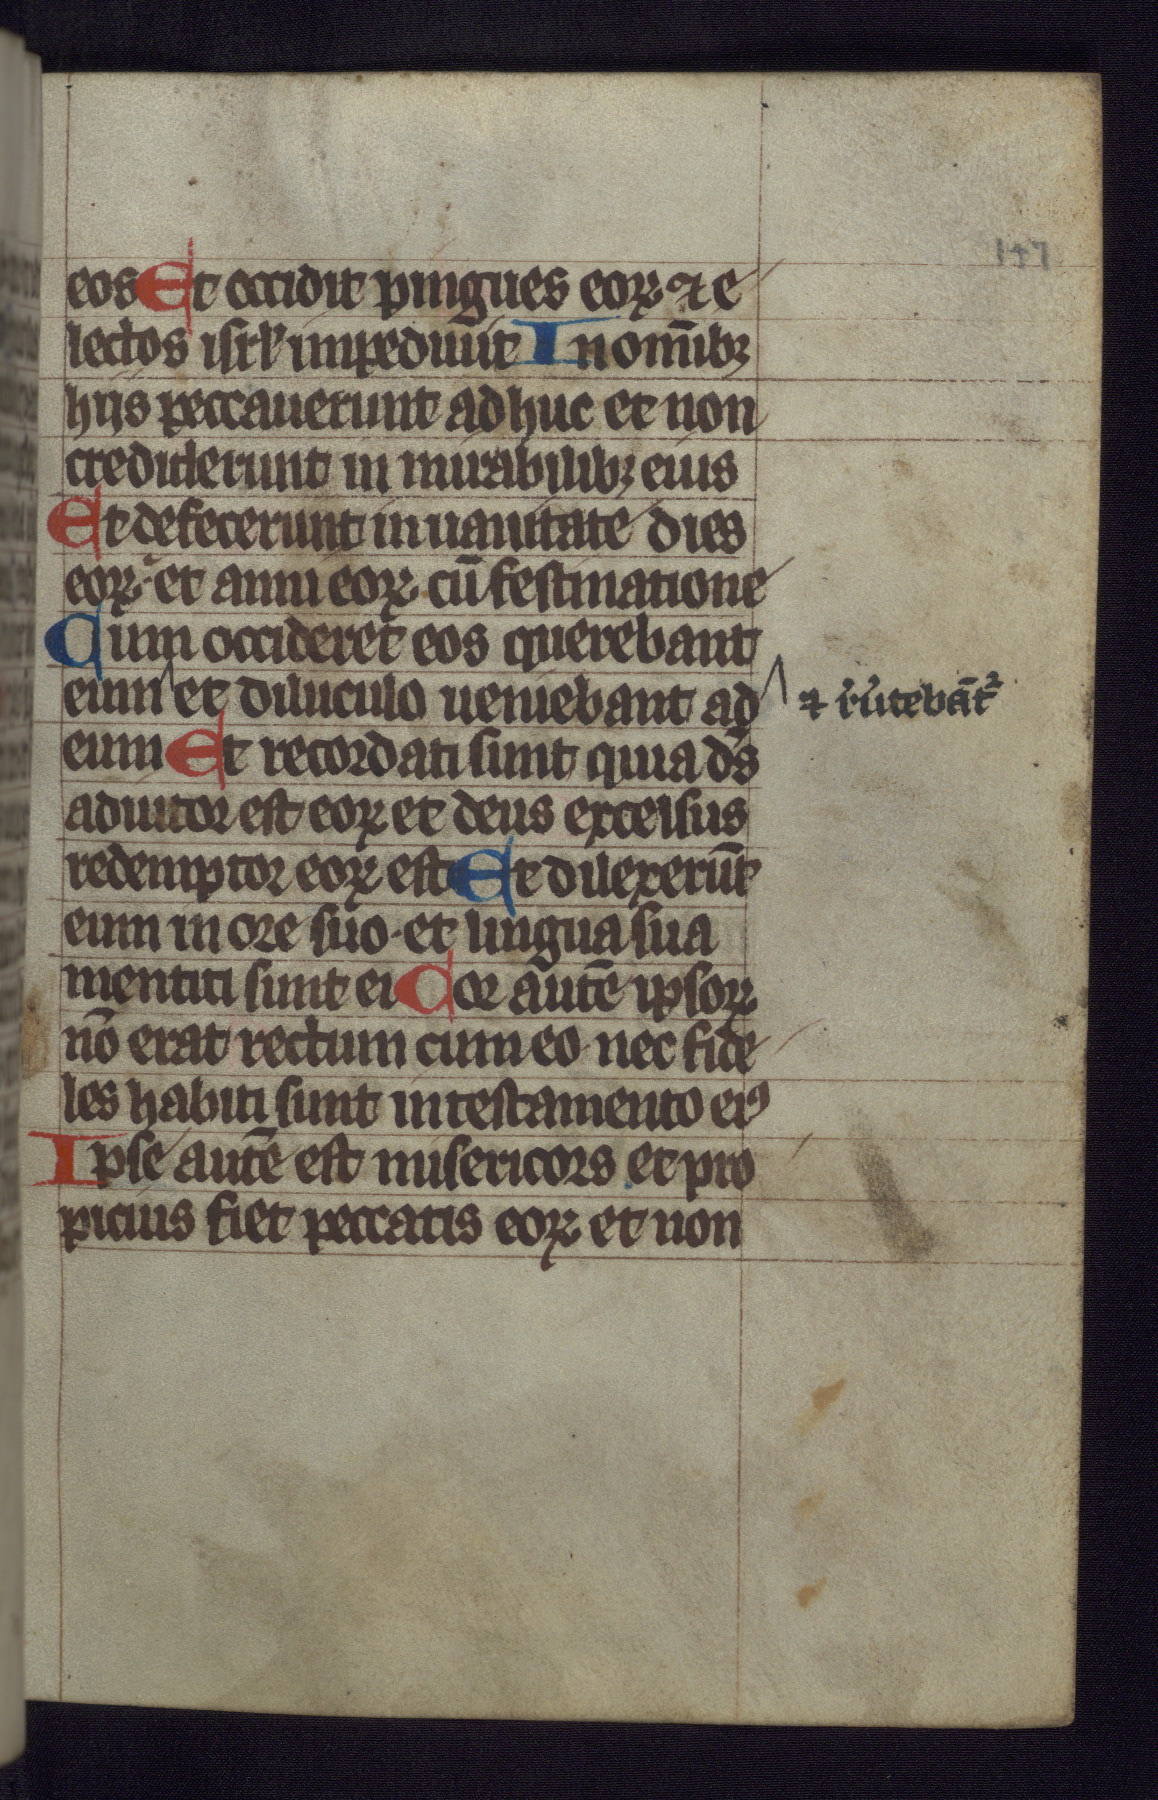 147
eos Et occidit pingues eoꝝ ⁊ e
lectos isrl' impediuūt In om̄ibꝫ
hijs peccauerunt adhuc et non
crediderunt in mirabilibꝫ eius
Et defecerunt in uanitate dies
eoꝝ · et anni eoꝝ cū festinatione
Cum occideret eos querebant
eum et diluculo ueniebant ad
⁊ reu̇tebāt᷑
eum Et recordati sunt quia dš
adiutor est eoꝝ et deus excelsus
redemptor eoꝝ est Et dilexerūt
eum in ore suo · et lingua sua
mentiti sunt ei Cor autē ipsoꝝ
nō erat rectum cum eo nec fide
les habiti sunt in testamento eiꝰ
Ipse autē est misericors et pro
picius fiet peccatis eoꝝ et non